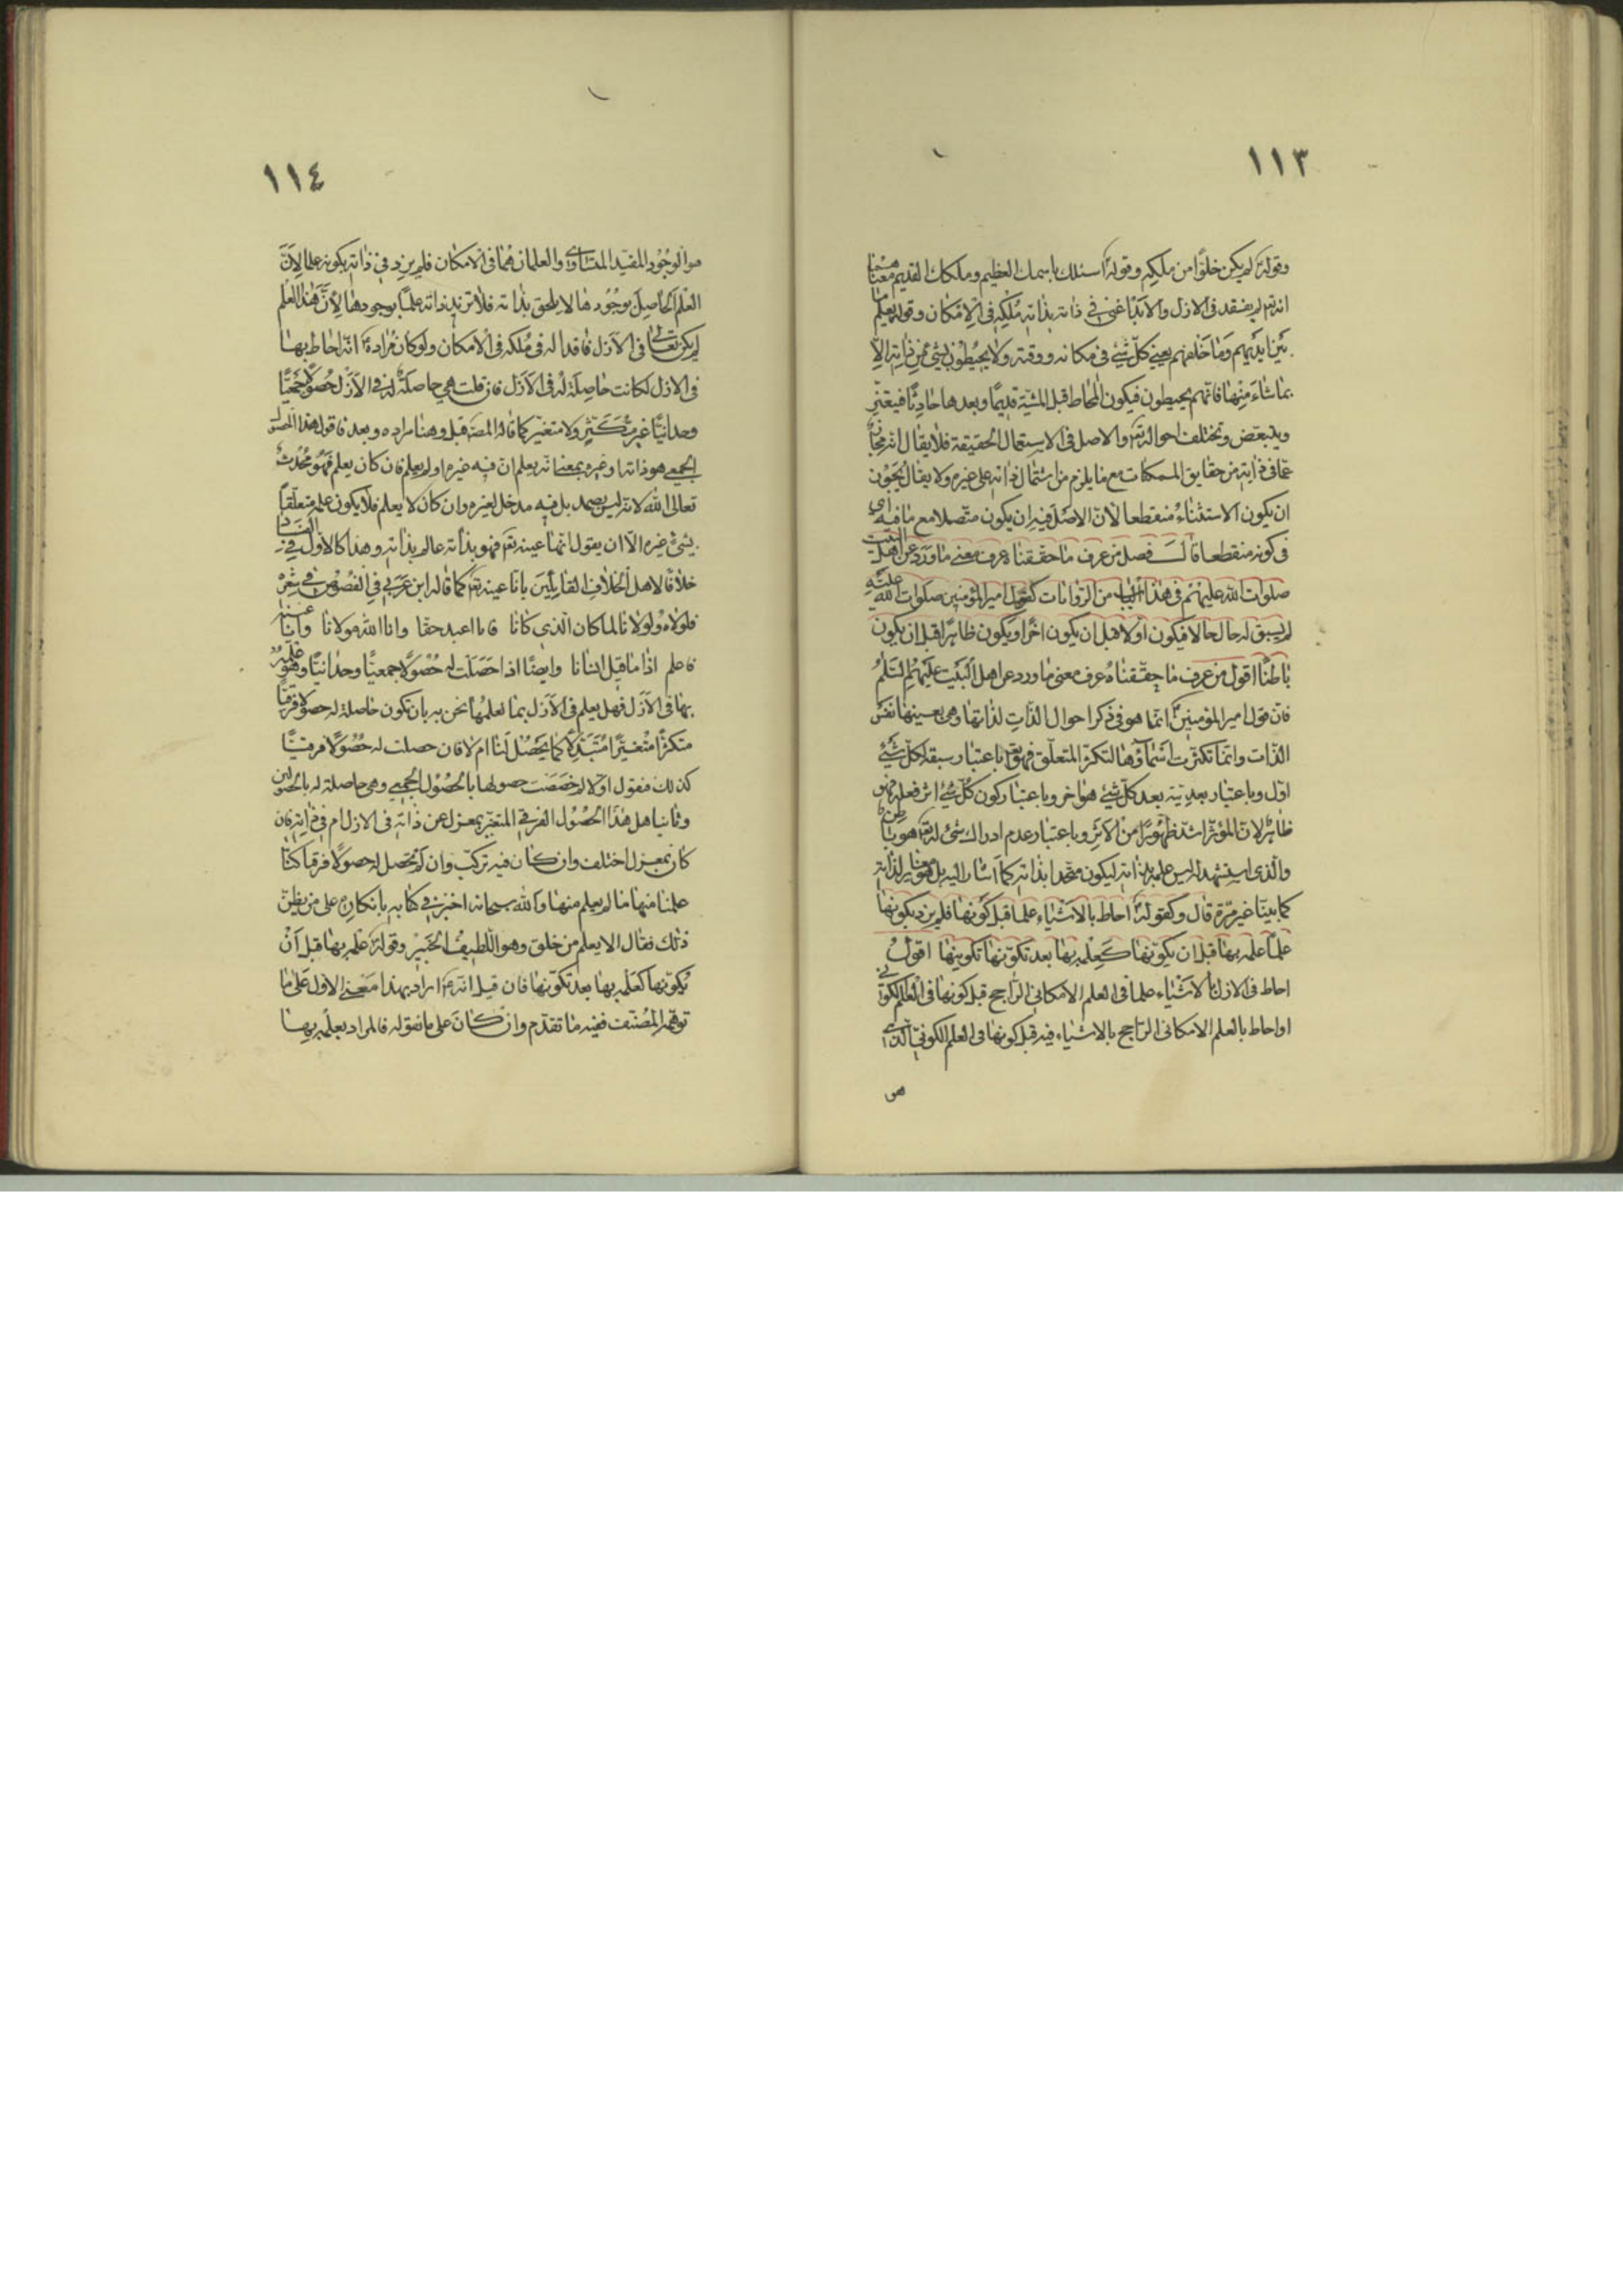 ١١٣
وقوله لم يكن خلوًا من ملكه وقوله اسئلك باسمك العظيم وملكك القديم
انه لم يفقد في الازل والابد غنى في ذاته بذاته ملكه في الامكان وقوله يعلم ما
بين ايديهم وما خلفهم يعني كلّ شيء في مكانه ووقته ولا يحيطون بشيء من ذاته الّا
بما شاء منها فانهم يحيطون فيكون المحاط قبل المشية قديمًا وبعدها حادثًا فيتغيّر
ويتبعّض وتختلف احواله والاصل في الاستعمال الحقيقة فلا يقال انه مجاز
عما في ذاته من حقايق الممكنات مع ما يلزم من اشتمال ذاته على غيره ولا يقال يجب
ان يكون الاستثناء منقطعا لانّ الاصل فيه ان يكون متّصلا مع ما فيه اي
في كونه منقطعا قال فصل من عرف ما حققناه عرف معنى ما ورد عن اهل البيت
صلوات الله عليهم في هذا الباب من الروايات كقول امير المؤمنين صلوات الله عليه
لم يسبق له حال حالا فيكون اولا قبل ان يكون اخرًا ويكون ظاهرًا قبل ان يكون
باطنًا اقول من عرف ما حقّقناه عرف معنى ما ورد عن اهل البيت عليهم السّلم
فانّ قول امير المؤمنين انما هو في ذكر احوال الذّات لذاتها وهي بعينها نفس
الذات وانّما تكثّرت اسماؤها لتكثّر المتعلّق فهو باعتبار سبقه لكلّ شيء
اوّل وباعتبار بعديّته بعد كلّ شيء هو اخر وباعتبار كون كلّ شيء اثر فعله فهو
ظاهر لانّ المؤثّر اشدّ ظهورًا من الاثر وباعتبار عدم ادراك شيء له هو باطن
والّذي استشهد له ليس علمه بذاته ليكون متّحدا بذاته كما اشار اليه بل هو مغاير لذاته
كما بيّنا غير مرّة قال وكقوله احاط بالاشياء علما قبل كونها فلم يزدد بكونها
علمًا علمه بها قبل ان يكوّنها كعلمه بها بعد تكوّنها تكوينها اقول
احاط في الازل بالاشياء علما في العلم الامكاني الراجح قبل كونها في العلم الكوني
او احاط بالعلم الامكاني الراجح بالاشياء فيه قبل كونها في العلم الكوني الّذي
هو
١١٤
هو الوجود المقيّد المتساوي والعلمان هما في الامكان فلم يزدد في ذاته بكونه علما لانّ
العلم الحاصل بوجودها لا يلحق بذاته فلا تزيد ذاته علمًا بوجودها لانّ هذا العلم
لم يكن تعالى في الازل فاقدا له في ملكه في الامكان ولو كان مراده انّه احاط بها
في الازل لكانت حاصلة له في الازل فان قلت هي حاصلة له في الازل حصولًا جمعيًّا
وحدانيًّا غير متكثّر ولا متغيّر كما قاله المص قبل وهنا مراده وبعد فاقول هذا الحصول
الجمعي هو ذاته او غيره بمعنى انه يعلم ان فيه غيره او لم يعلم فان كان يعلم فهو محدث
تعالى الله لانه ليس بصمد بل فيه مدخل لغيره وان كان لا يعلم فلا يكون علمه متعلّقًا
بشيء غيره الّا ان يقول انها عينه فهو بذاته عالم بذاته وهذا كالاول في الفساد
خلافًا لاهل الخلاف القائلين بانّا عينه كما قاله ابن عربي في الفصوص في شعره
فلولاه ولولانا لما كان الّذي كانا فانا اعبد حقا وانا الله مولانا وانّا عينه
فاعلم اذا ما قيل انسانا وايضًا اذا حصلت له حصولًا جمعيًّا وحدانيًّا وهو علمه
بها في الازل فهل يعلم في الازل بما نعلمها نحن به بان تكون حاصلة له حصولا فرقيًا
متكثرًا متغيّرًا متبدّلًا كما يحصل لنا ام لا فان حصلت له حصولًا فرقيًّا
كذلك فنقول اولا لم خصصت حصولها بالحصول الجمعي وهي حاصلة له بالحصولين
وثانيا هل هذا الحصول الفرقي المتغيّر بمعزل عن ذاته في الازل ام في ذاته فان
كان بمعزل اختلف وان كان فيه تركّب وان لم تحصل له حصولًا فرقيا كنّا
علمنا منها ما لم يعلم منها والله سبحانه اخبر في كتابه بانكاره على من يظن
ذلك فقال الا يعلم من خلق وهو اللطيف الخبير وقوله علمه بها قبل ان
يكوّنها كعلمه بها بعد تكوّنها فان قيل انه اراد بهذا معنى الاول على ما
توهّمه المصنّف ففيه ما تقدّم وان كان على ما نقوله فالمراد بعلمه بها